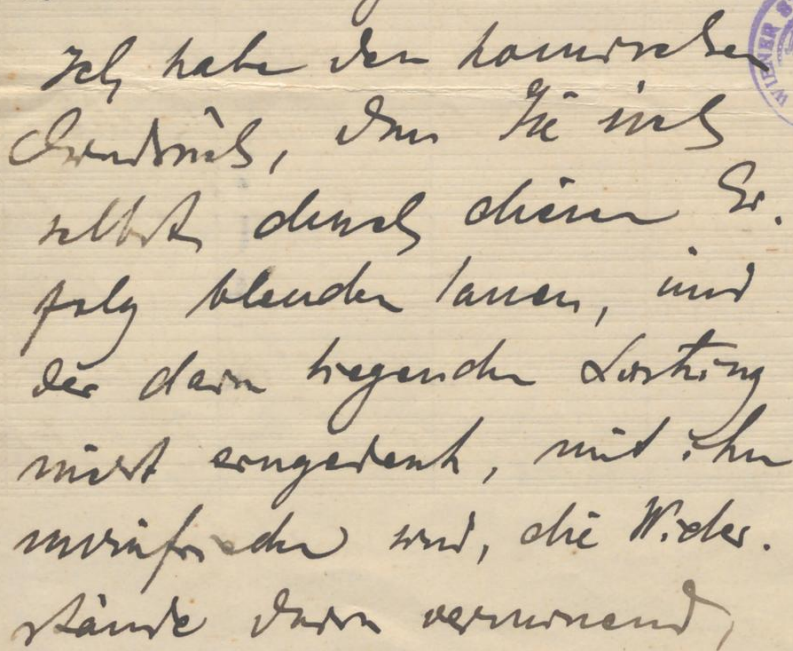 Ich habe den komischen
Eindruck, dass Sie sich
selbst durch diesen Er-
folg blenden lassen, und
der darin liegenden Leistung
nicht eingedenk, mit ihm
unzufrieden sind, die Wider-
stände darin vermissend,
WIENER S